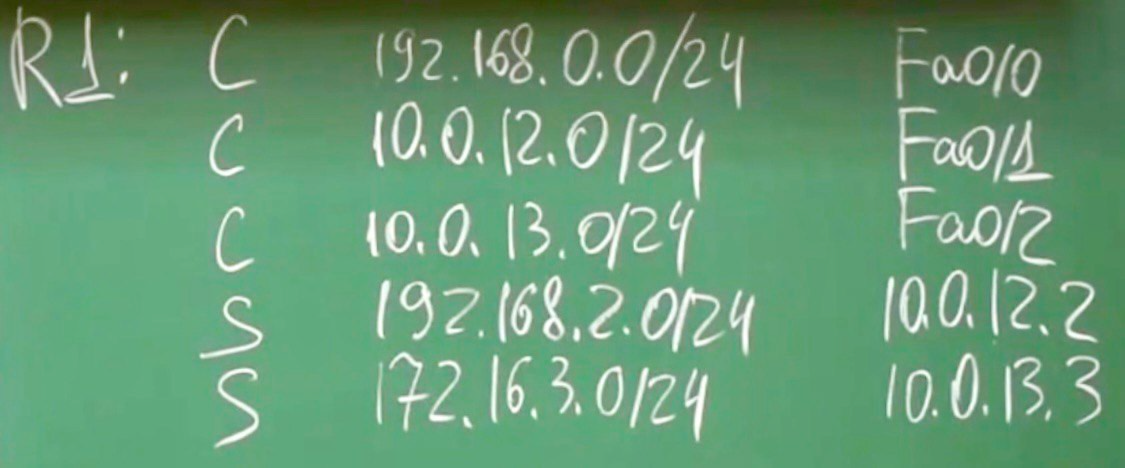 R1: C 192.168.0.0/24 Fa0/0
C 10.0.12.0/24 Fa0/1
C 10.0.13.0/24 Fa0/2
S 192.168.2.0/24 10.0.12.2
S 172.16.3.0/24 10.0.13.3